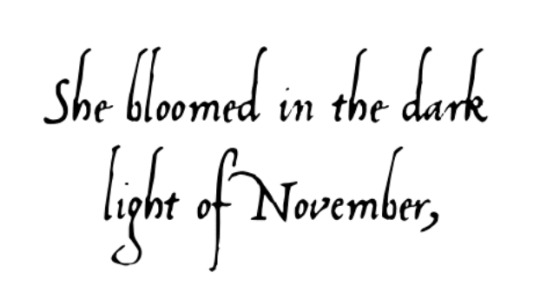 She bloomed in the dark
light of November,